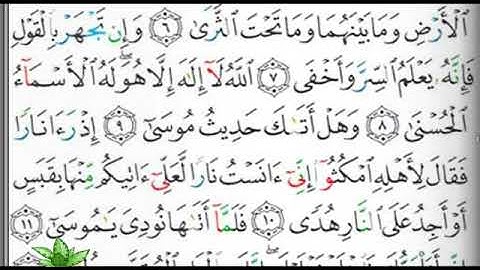 ٱلْأَرْضِ وَمَا بَيْنَهُمَا وَمَا تَحْتَ ٱلثَّرَىٰ ٦ وَإِن تَجْهَرْ بِٱلْقَوْلِ
فَإِنَّهُۥ يَعْلَمُ ٱلسِّرَّ وَأَخْفَى ٧ ٱللَّهُ لَآ إِلَٰهَ إِلَّا هُوَ ۖ لَهُ ٱلْأَسْمَآءُ
ٱلْحُسْنَىٰ ٨ وَهَلْ أَتَىٰكَ حَدِيثُ مُوسَىٰٓ ٩ إِذْ رَءَا نَارًا
فَقَالَ لِأَهْلِهِ ٱمْكُثُوٓا۟ إِنِّىٓ ءَانَسْتُ نَارًا لَّعَلِّىٓ ءَاتِيكُم مِّنْهَا بِقَبَسٍ
أَوْ أَجِدُ عَلَى ٱلنَّارِ هُدًى ١٠ فَلَمَّآ أَتَىٰهَا نُودِىَ يَٰمُوسَىٰٓ ١١